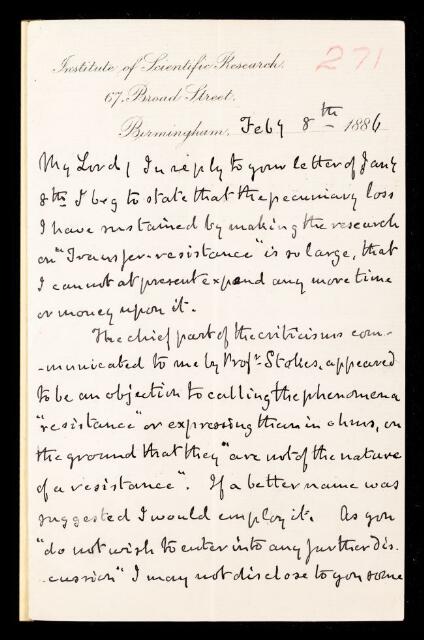 Institute of Scientific Research.
271
67, Broad Street.
Birmingham, Feby 8th 1886
My Lord, In reply to your letter of Jany
8th I beg to state that the pecuniary loss
I have sustained by making the research
on "Transfer-resistance" is so large, that
I cannot at present expend any more time
or money upon it.
The chief part of the criticisms com-
-municated to me by Profr. Stokes, appeared
to be an objection to calling the phenomena
"resistance" or expressing them in ohms, on
the ground that they "are not of the nature
of a resistance". If a better name was
suggested I would employ it. As you
"do not wish to enter into any further dis-
-cussion" I may not disclose to you some